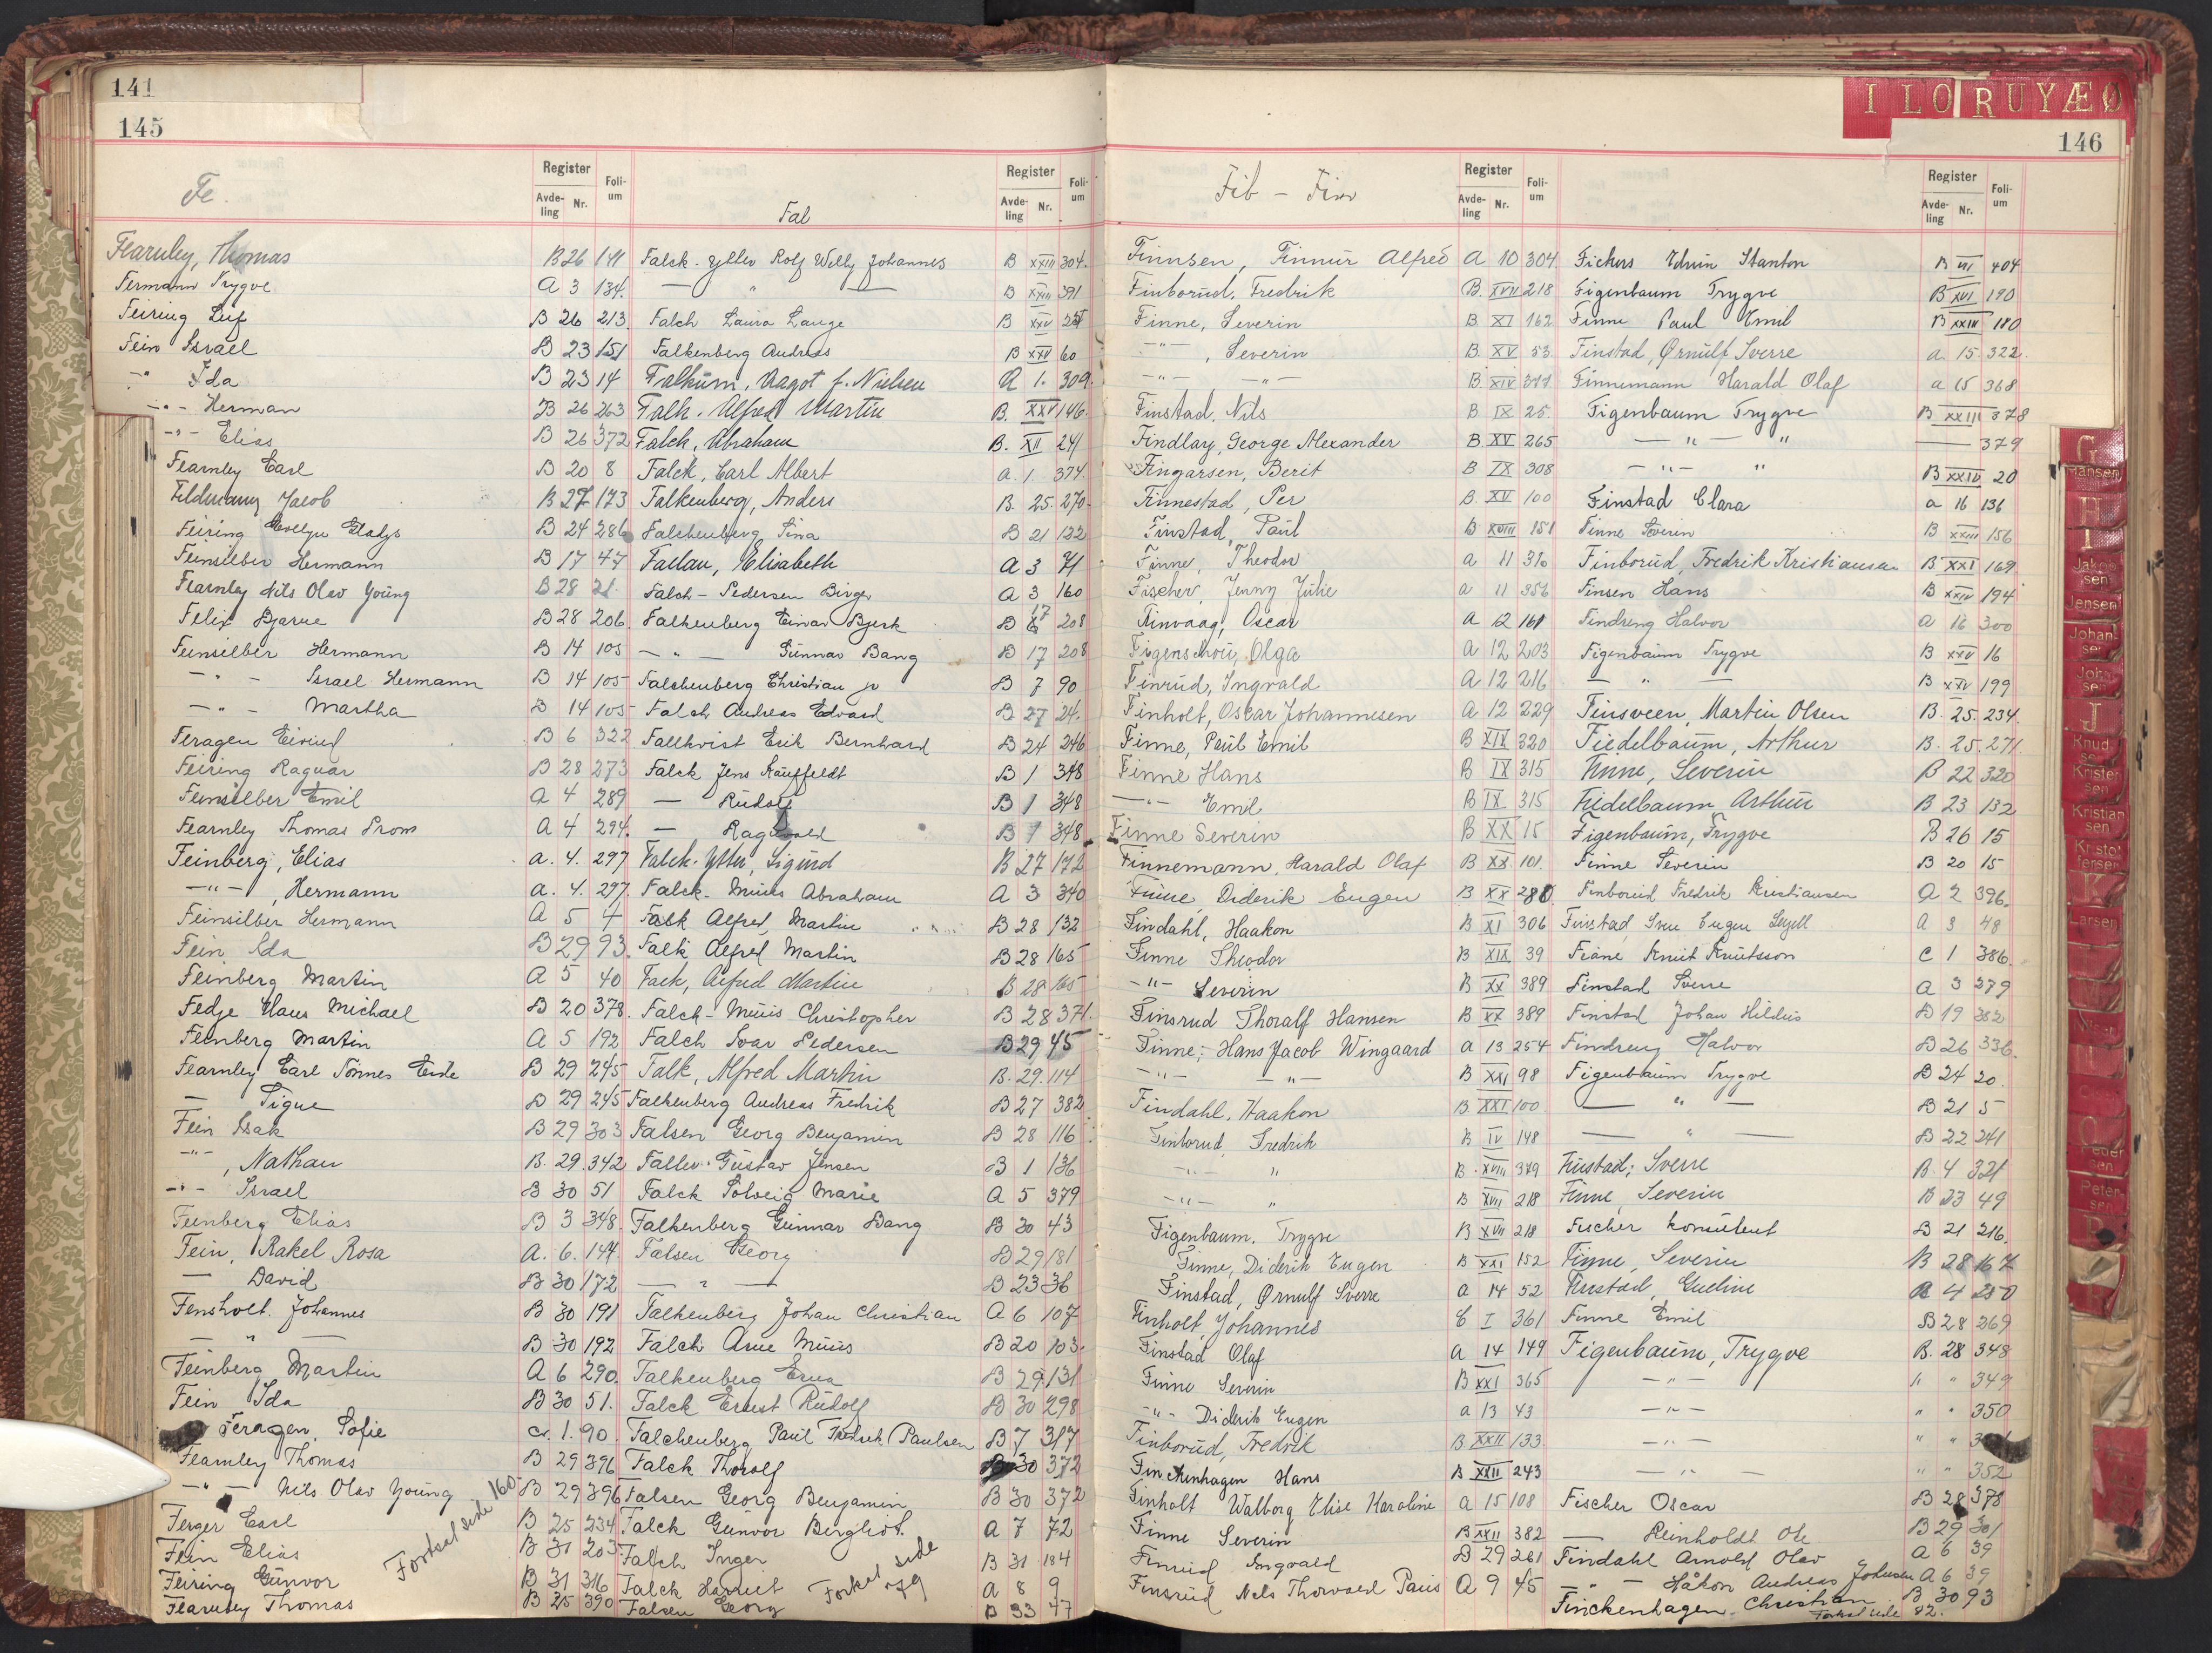 141
145
Fe.
Register
Avdeling Nr. Folium
Fearnley, Thomas B 26 141
Fermann Trygve A 3 134.
Feiring Leif B 26 213
Fein Israel B 23 151
-"- Ida B 23 14
-"- Herman B 26 263
-"- Elias B 26 372
Fearnley Carl B 20 8
Feldmann Jacob B 27 173
Feiring Evelyn Gladys B 24 286
Feinsilber Hermann B 17 47
Fearnley Nils Olav Young B 28 21.
Felix Bjarne B 28 206.
Feinsilber Hermann B 14 105
-"- Israel Hermann B 14 105
-"- Martha B 14 105
Feragen Eivind B 6 322
Feiring Ragnar B 28 273
Feinsilber Emil A 4 289
Fearnley Thomas Prom A 4 294.
Feinberg, Elias a. 4. 297
-"-, Hermann a. 4. 297.
Feinsilber Hermann A 5 4
Fein Ida B 29 93.
Feinberg Martin A 5 40
Fedje Hans Michael B 20 378.
Feinberg Martin A 5 192
Fearnley Carl Tönnes Eide B 29 245
— Signe B 29 245
Fein Isak B 29 303
-"-, Nathan B. 29. 342
-"- Israel B 30 51
Feinberg Elias B 3 348.
Fein, Rakel Rosa A. 6. 144.
— David B 30 172
Fensholt. Johannes B 30 191
— " — B 30 192
Feinberg Martin A 6 290.
Fein Ida B 30 51.
Feragen, Sofie cr. 1. 90.
Fearnley Thomas B 29 396
-"- Nils Olav Young B 29 396
Ferger Carl B 25 234
Fein Elias B 31 203
Feiring Gunvor B 31 316
Fearnley Thomas B 25 390
Fortsat side 160
Fal
Register
Avdeling Nr. Folium
Falck-Ytter Rolf Willy Johannes B XXIII 304.
— " — B XXIII 391
Falch Laura Lauge B XXV
Falkenberg Andreas B XXV 60
Falkum, Aagot f. Nielsen A 1. 309.
Falk. Alfred Martin B. XXV 146.
Falck, Abraham B. XII 241
Falck, Carl Albert a. 1. 374.
Falkenberg, Anders B. 25. 270.
Falchenberg Sina B 21 122
Fallan, Elisabeth A 3 71
Falch-Pedersen Birger A 3 160
Falkenberg Einar Bjerk B 17 208
— " — Gunnar Bang B 17 208
Falchenberg Christian jr B 7 90
Falch Andreas Edvard B 27 24.
Fallkvist Erik Bernhard B 24 246
Falck Jens Kauffeldt B 1 348
— Rudolf B 1 348
— Ragnvald B 1 348
Falck-Ytter, Sigurd B 27 172
Falck-Muus Abraham A 3 340
Falk Alfred Martin B 28 132
Falk Alfred Martin B 28 165
Falk, Alfred Martin B 28 165
Falck-Muus Christopher B 28 371.
Falch Ivar Pedersen B 29 45
Falk, Alfred Martin B. 29. 114
Falkenberg Andreas Fredrik B 27 382
Falsen Georg Benjamin B 28 116
Faller Gustav Jensen B 1 136
Falck Solveig Marie A 5 379
Falkenberg Gunnar Bang B 30 43
Falsen Georg B 29 181
— " — B 23 36
Falkenberg Johan Christian A 6 107
Falch Arne Muus B 20 103.
Falkenberg Erna B 29 131
Falck Ernst Rudolf B 30 298
Falchenberg Paul Fredrik (Paulsen B 7 317
Falck Thorolf B 30 372
Falsen Georg Benjamin B 30 372
Falck Gunvor Bergliot. A 7 72
Falch Inger B 31 184
Falck Harriet A 8 9
Falsen Georg B 33 77
Forts. side 79
I L O R U Y Æ Ø
146
Fib - Finn
Register
Avdeling Nr. Folium
Finnsen, Finnur Alfred A 10 304
Finborud, Fredrik B. XVII 218
Finne, Severin B XI 162
-"-, Severin B. XV 53.
-"- -"- B. XIV 311
Finstad, Nils B IX 25.
Findlay, George Alexander B. XV 265
Fingarsen, Berit B IX 308
Finnestad, Per B. XV 100
Finstad, Paul B XVIII 151
Finne, Theodor a 11 310
Fischer, Jenny Julie a 11 356
Finvaag, Oscar A 12 161
Figenschou, Olga A 12 203
Finrud, Ingvald A 12 216
Finholt, Oscar Johannesen A 12 229
Finne, Paul Emil B XIX 320
Finne Hans B IX 315
-"- Emil B IX 315
Finne Severin B XX 15
Finnemann, Harald Olaf B XX 101.
Finne, Diderik Eugen B XX 280
Findahl, Haakon B XI 306
Finne Theodor B XIX 39
-"- Severin B XX 389
Finsrud Thoralf Hansen B XX 389
Finne, Hans Jacob Wingaard a 13 254
-"- -"- B XXI 98
Findahl, Haakon B. XXI 100
Finborud, Fredrik B IV 148
-"- " B. XVIII 379
-"- " B XVII 218
Figenbaum. Trygve B XVII 218
Finne, Diderik Eugen B XXI 152
Finstad, Ørnulf Sverre a 14 52
Finholt, Johannes C I 361
Finstad Olaf a 14 149
Finne Severin B XXI 365
-"- Diderik Eugen a 13 43
Finborud, Fredrik B XXII 133.
Finckenhagen Hans B XXII 243
Finholt Walborg Elise Karoline a 15 108
Finne Severin B XXII 382
Finrud Ingvald B 29 261
Finsrud Nels Thorvald Paus A 9 45
Register
Avdeling Nr. Folium
Fichers Edwin Stanton B VI 404
Figenbaum Trygve B XVI 190
Finne Paul Emil B XXIII 180
Finstad, Ørnulf Sverre a. 15. 322.
Finnemann Harald Olaf a 15 368
Figenbaum Trygve B XXIII 378
— " — " — 379
— " — " B XXIV 20
Finstad Clara a 16 136
Finne Severin B XXIII 156
Finborud, Fredrik Kristiansen B XXI 169
Finsen Hans B XXIV 194
Findreng Halvor a 16 300
Figenbaum Trygve B XXV 16
— " — B XXV 199
Finsveen, Martin Olsen B. 25. 234.
Fiedelbaum, Arthur B. 25. 271.
Finne, Severin B 22 320
Fiedelbaum Arthur B 23 132
Figenbaum, Trygve B 26 15
Finne Severin B 20 15
Finborud Fredrik Kristiansen A 2 396.
Finstad Sven Eugen Seyell A 3 48
Fiane Knut Knutsson C 1 386.
Finstad Sverre A 3 279
Finstad Johan Hildus B 19 382
Findreng Halvor B 26 336.
Figenbaum Trygve B 24 20.
— " — B 21 5
— " — B 22 241
Finstad, Sverre B. 4 321
Finne, Severin B 23 49
Fischer konsulent B 21 216.
Finne, Severin B 28 167
Finstad, Gudine B 4 250
Finne Emil B 28 269
Figenbaum, Trygve B. 28 348
-"- " " 349
-"- " " 350
-"- " "
-"- " " 352
Fischer Oscar B 28 378
— Reinholdt Ole B 29 301
Findahl Arnold Olav A 6 39
— " — Håkon Andreas Johnsen A 6 39
Finckenhagen Christian B 30 93
Fortsat side 82.
G
Hansen
H
I
Jakobsen
Jensen
Johansen
Johnsen
J
Knudsen
Kristensen
Kristiansen
Kristoffersen
Larsen
Nilsen
O
Pedersen
Petersen